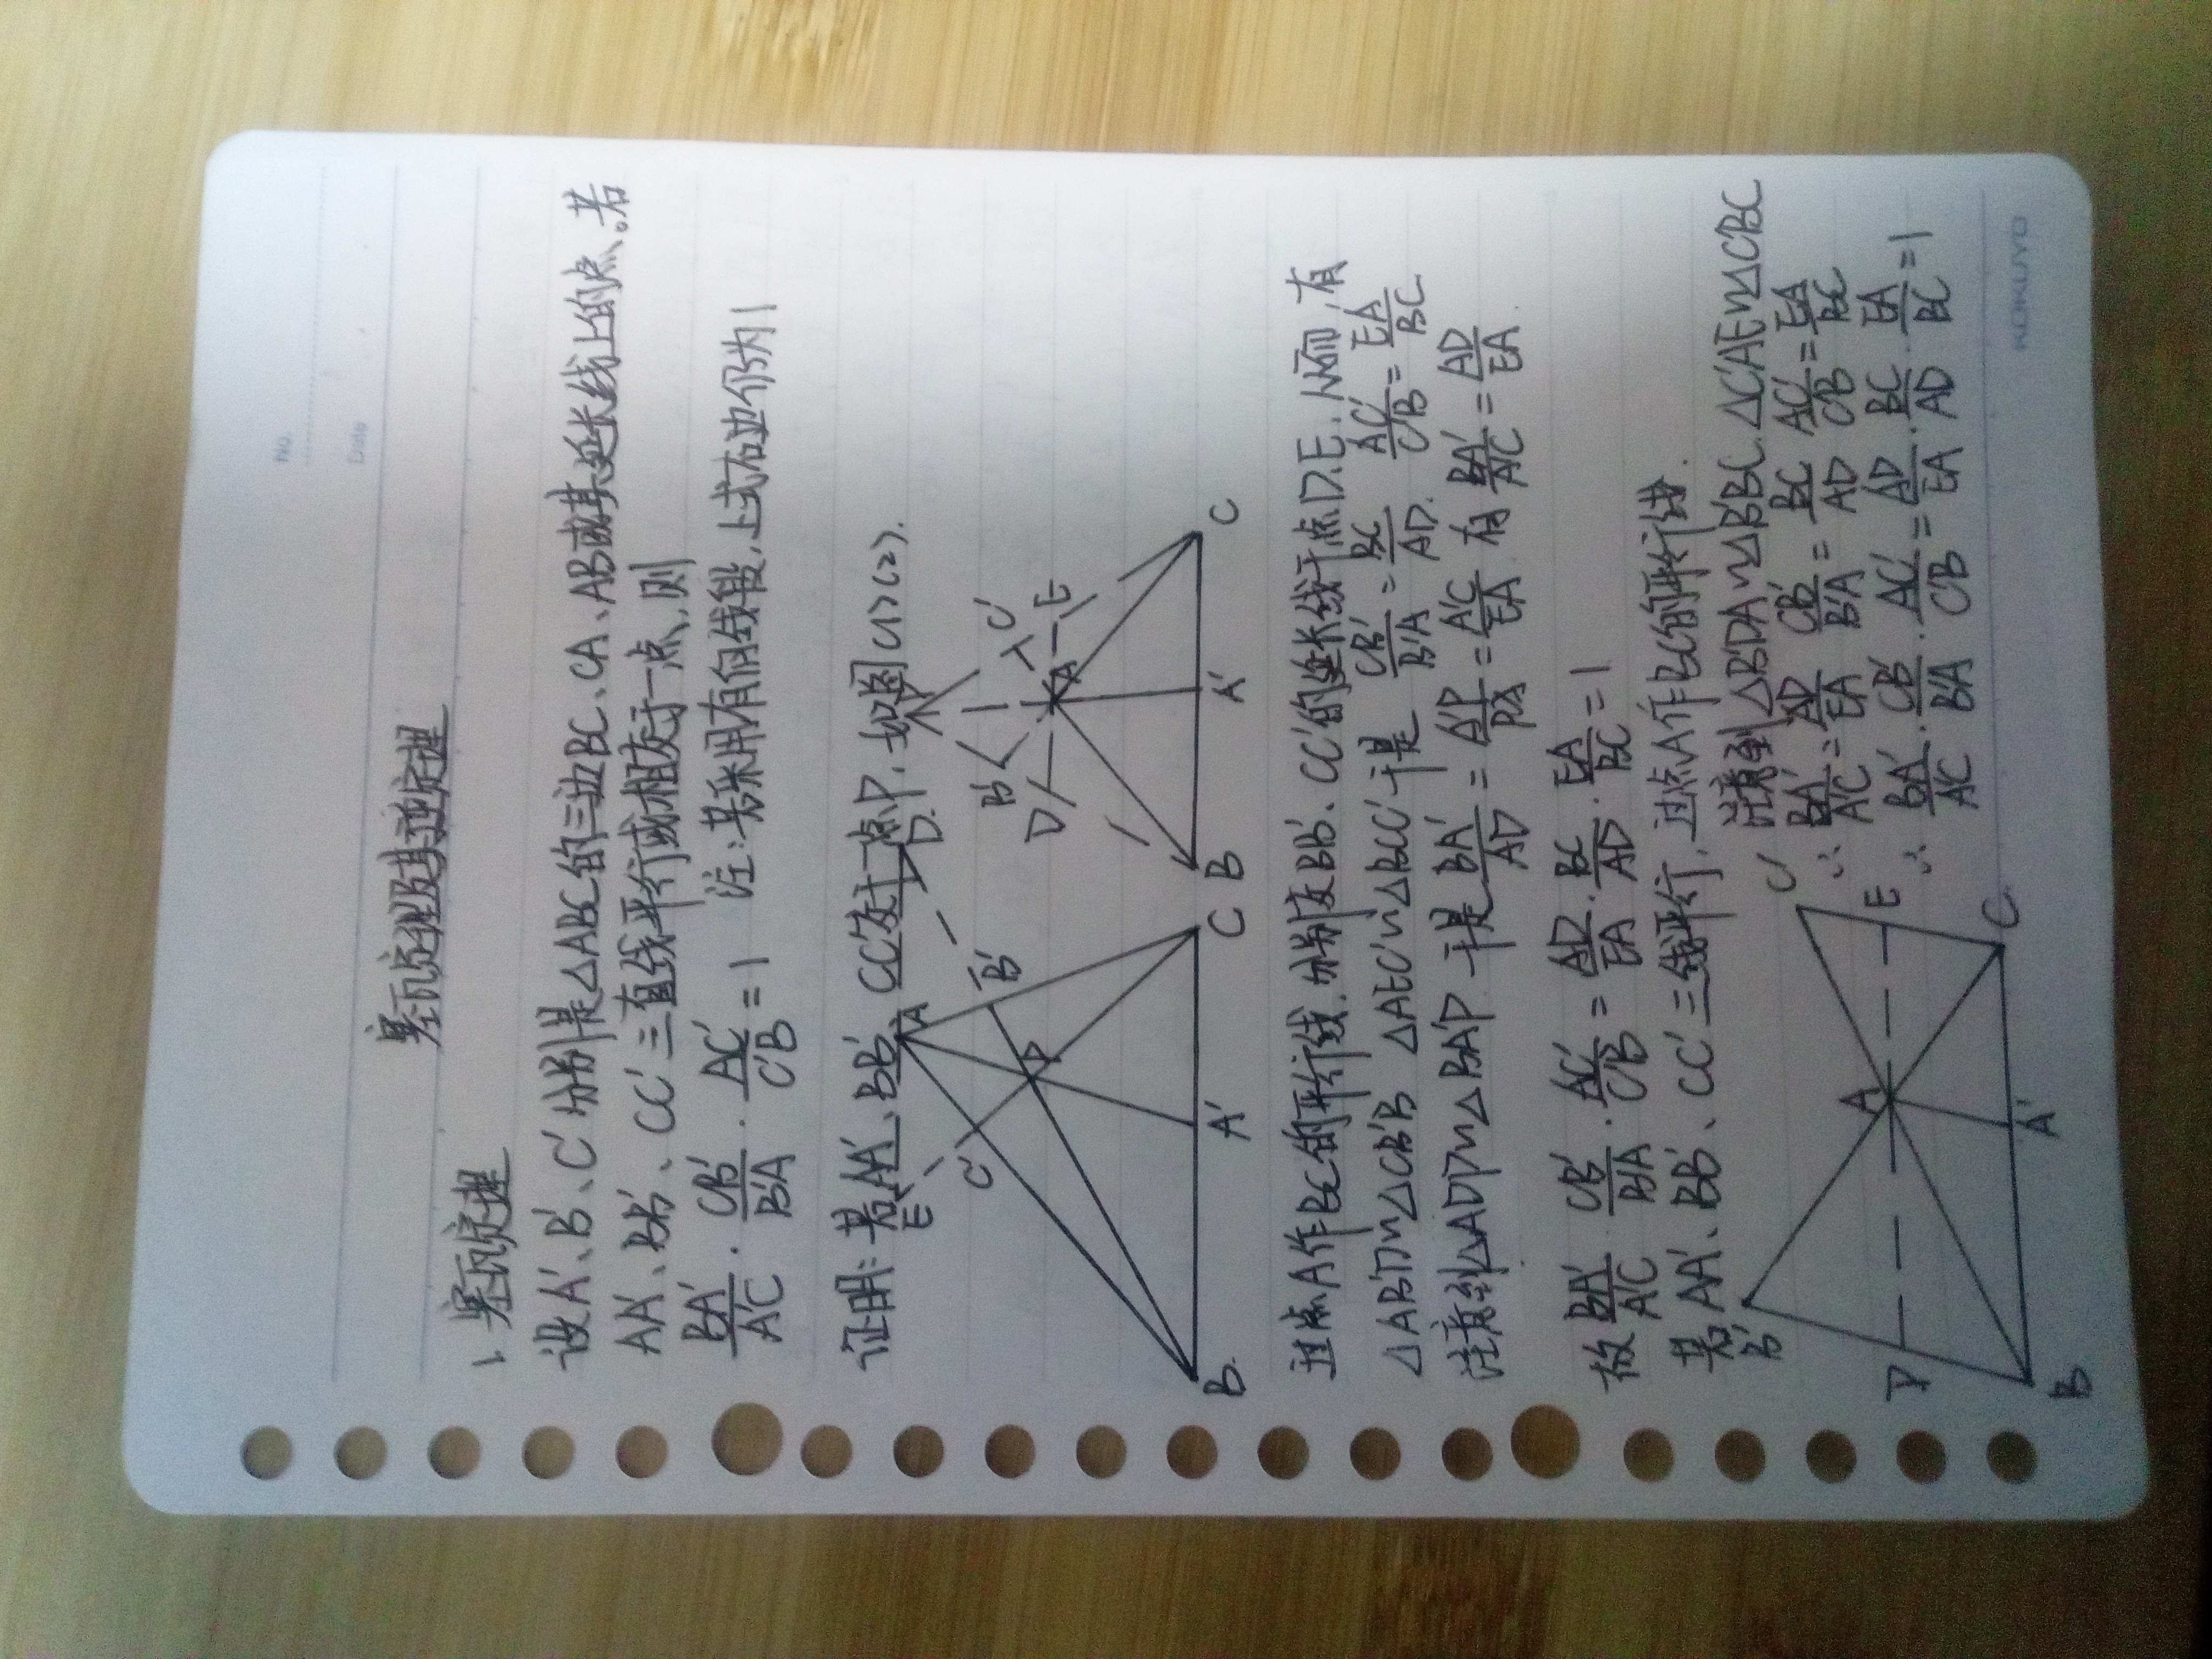 No.
Date
塞瓦定理及其逆定理
1. 塞瓦定理
设A′、B′、C′分别是△ABC的三边BC、CA、AB或其延长线上的点、若
AA′、BB′、CC′三直线平行或相交于一点、则
BA′/A′C · CB′/B′A · AC′/C′B = 1 注:若采用有向线段,上式右边仍为1
证明:若AA′、BB′、CC′交于一点P,如图(1)(2).
E C′ A B′ D P B A′ C
B′ D C′ A E B A′ C
过点A作BC的平行线,分别交BB′、CC′的延长线于点D.E.从而,有
△AB′D∽△CB′B △AEC′∽△BCC′于是 CB′/B′A = BC/AD. AC′/C′B = EA/BC
注意到△ADP∽△BA′P 于是 BA′/AD = A′P/PA = A′C/EA 有 BA′/A′C = AD/EA.
故 BA′/A′C · CB′/B′A · AC′/C′B = AD/EA · BC/AD · EA/BC = 1
若AA′、BB′、CC′三线平行,过点A作BC的平行线.
注意到△B′DA∽△B′BC.△C′AE∽△C′BC
∴ BA′/A′C = AD/EA CB′/B′A = BC/AD AC′/C′B = EA/BC
∴ BA′/A′C · CB′/B′A · AC′/C′B = AD/EA · BC/AD · EA/BC = 1
B′ D A C′ E B A′ C
KOKUYO